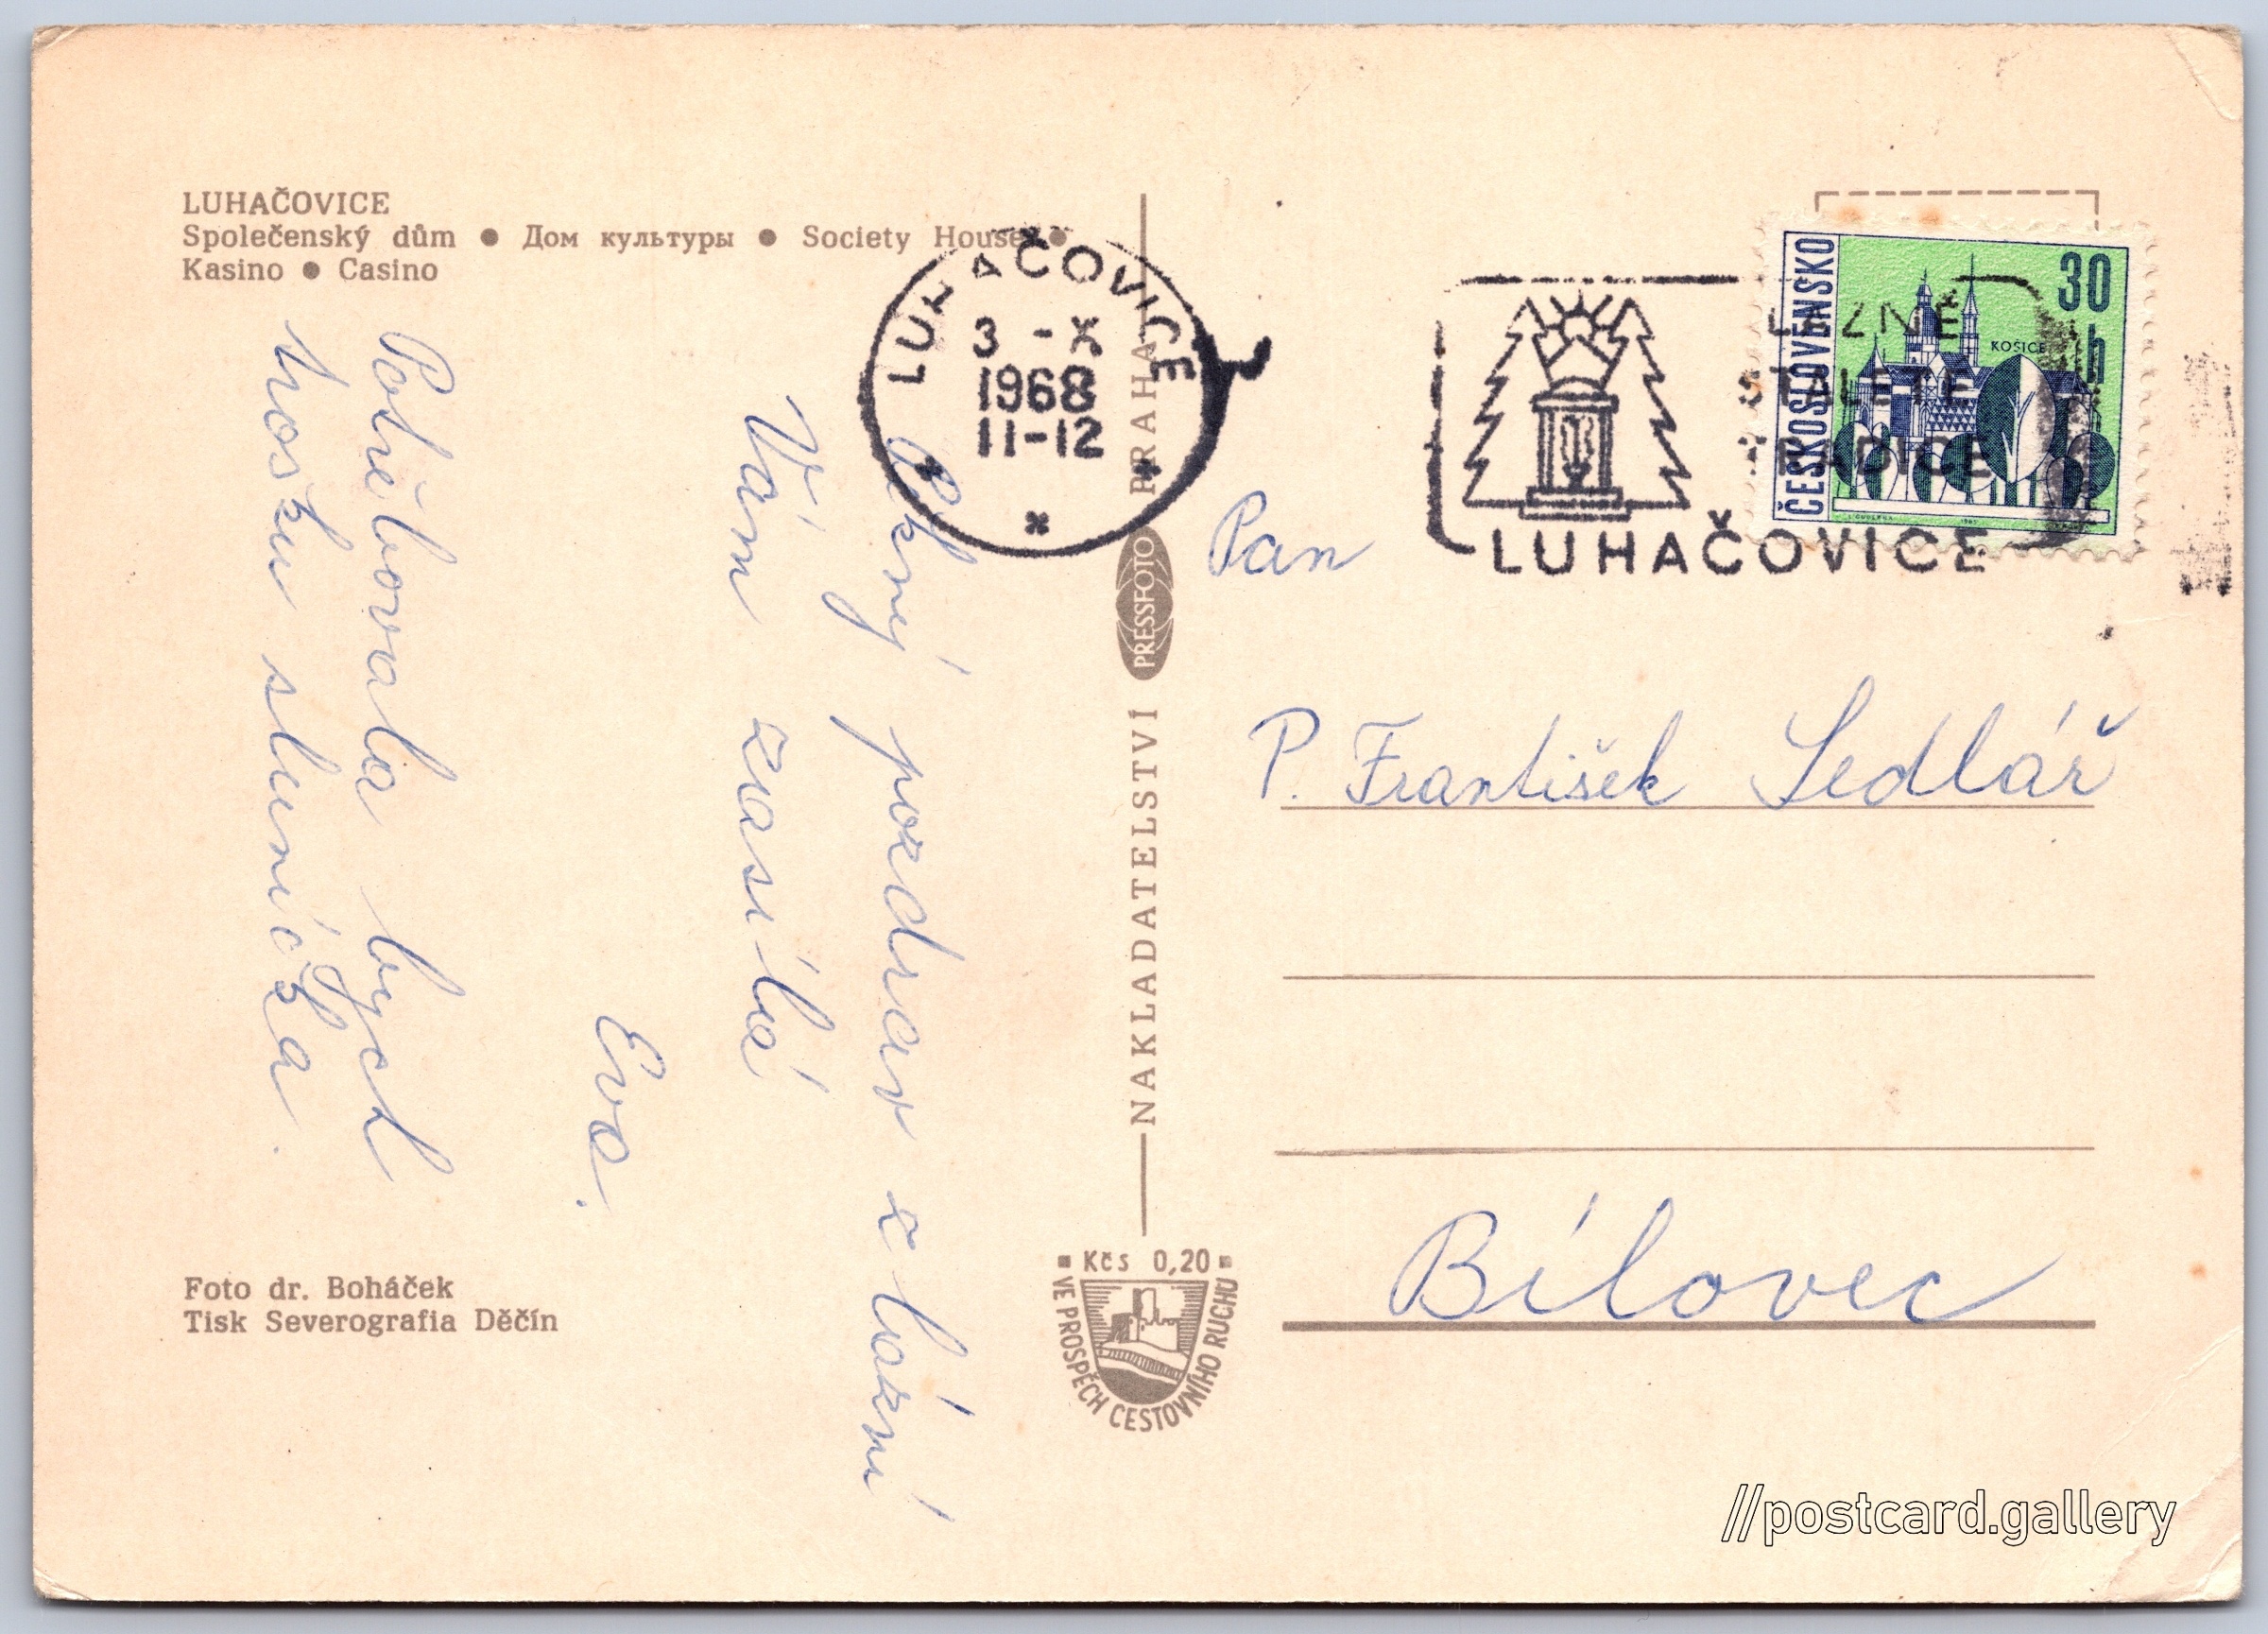 LUHAČOVICE
Společenský dům ● Дом культуры ● Society House ●
Kasino ● Casino
Pěkný pozdrav z lázní
Vám zasílá
Eva.
Potřebovala bych
trošku sluníčka.
Foto dr. Boháček
Tisk Severografia Děčín
LUHAČOVICE
3 - X
1968
11-12
NAKLADATELSTVÍ PRESSFOTO PRAHA
Kčs 0,20
VE PROSPĚCH CESTOVNÍHO RUCHU
LÁZNĚ
STALETÉ
TRADICE
LUHAČOVICE
ČESKOSLOVENSKO
30 h
KOŠICE
Pan
P. František Sedlář
Bílovec
//postcard.gallery